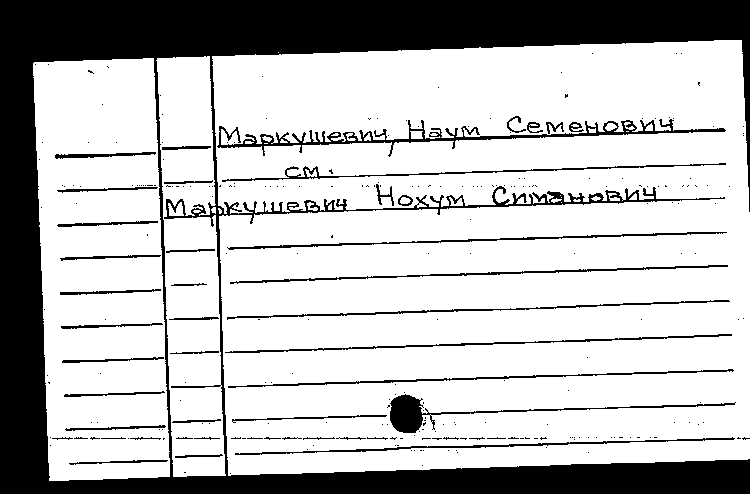 Маркушевич, Наум Семенович
см.
Маркушевич Нохум Симанович